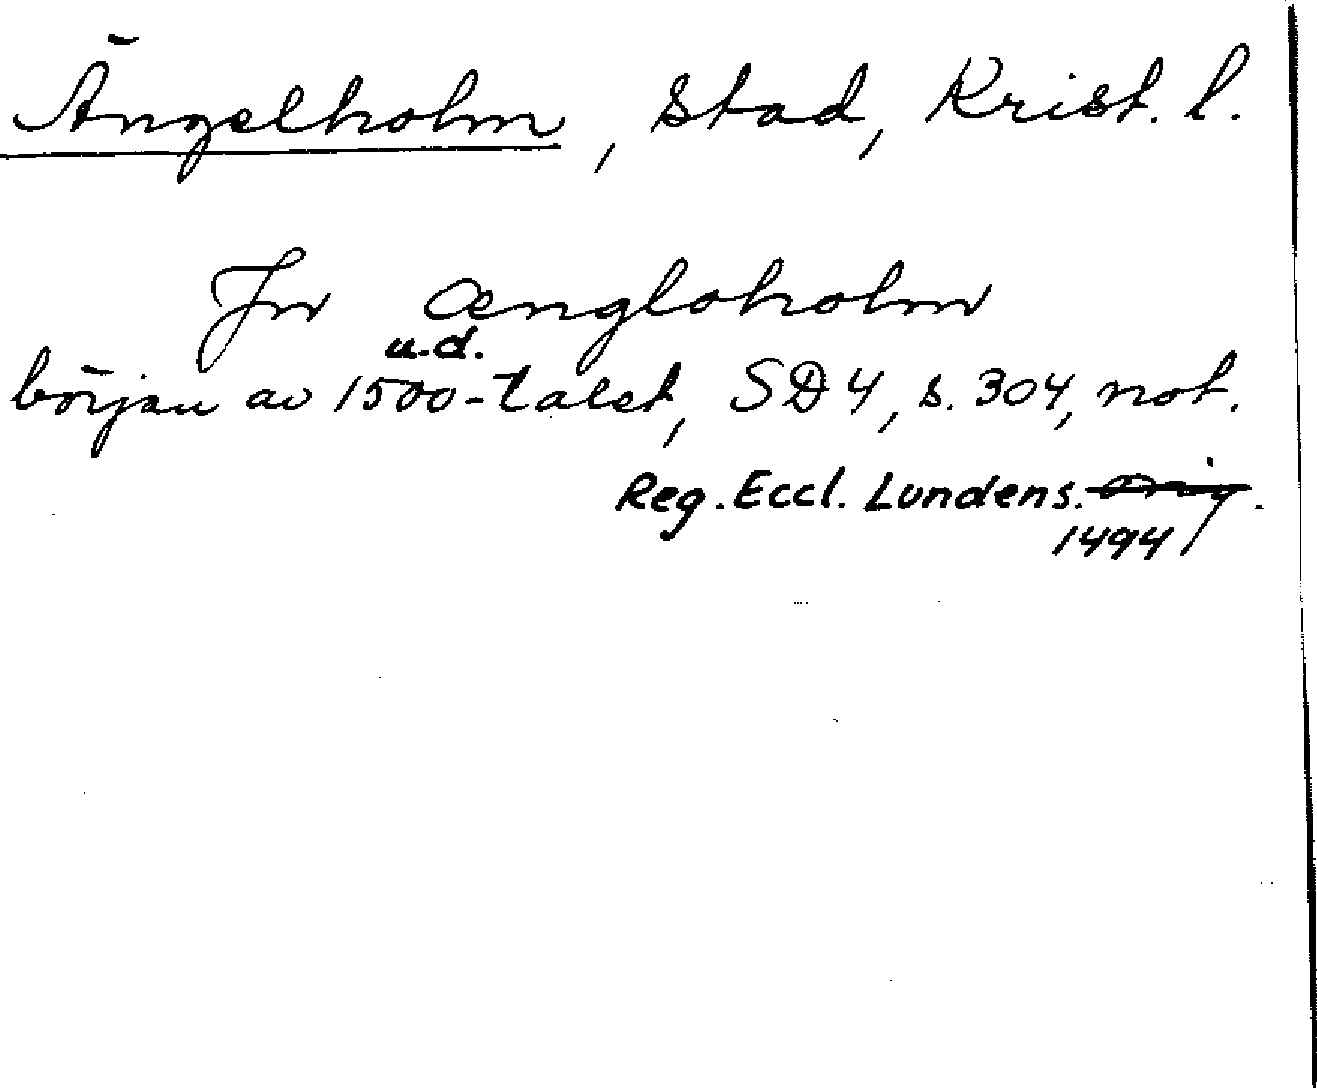 Ängelholm, stad, Krist. l.
Jn ængloholm
u.d.
början av 1500-talet, SD 4, s. 304, not.
Reg. Eccl. Lundens. orig.
1494